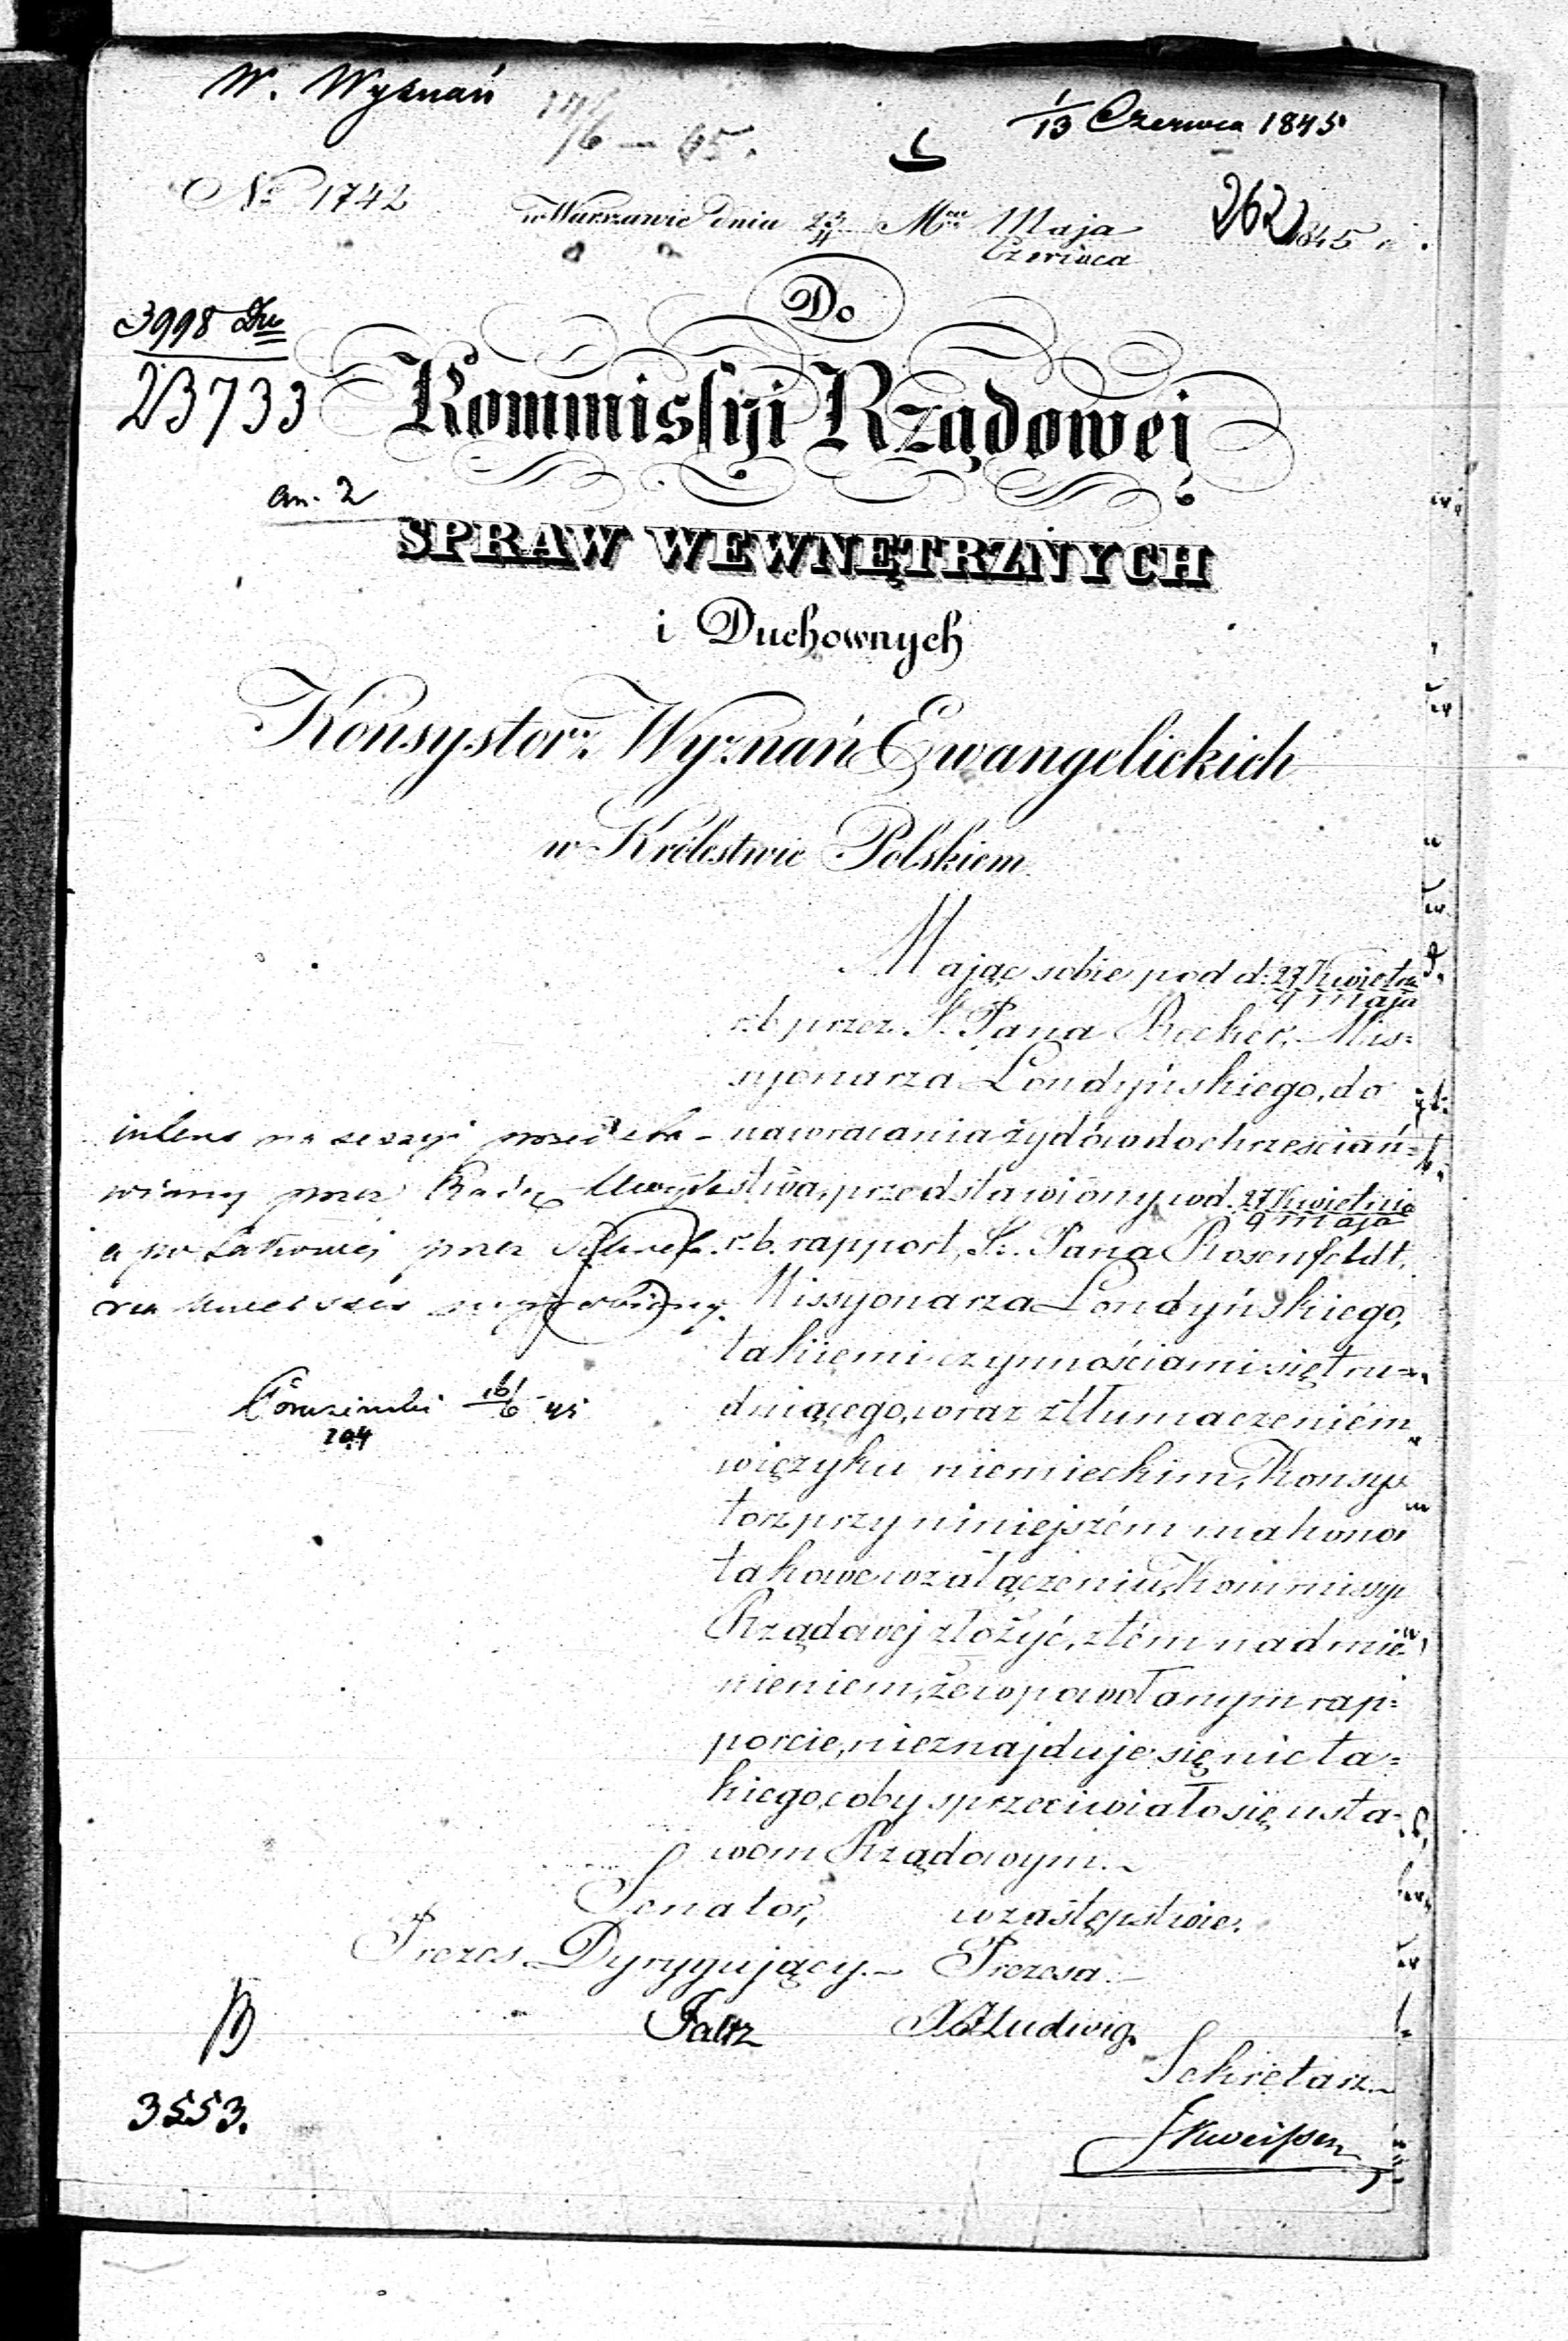 W. Wyznań
1/13 Czerwca 1845
№ 1742
w Warszawie dnia 23/4 Mca Maja/Czerwca 1845 r.
262
3998
23733
an. 2
Do
Kommissyi Rządowej
SPRAW WEWNĘTRZNYCH
i Duchownych
Konsystorz Wyznań Ewangelickich
w Królestwie Polskiem.
Mając sobie pod d: 27 Kwietnia/9 Maja
r. b. przez P. Pana Becker, Mis=
syonarza Londyńskiego, do
nawracania żydów do chrześciań=
stwa, przedstawiony w d. 27 Kwietnia/9 maja
r. b. rapport, Pana Rosenfeldt,
Missyonarza Londyńskiego,
takiemi czynnościami się tru=
dniącego, wraz z tłumaczeniem
w języku niemieckim, Konsys
torz przy niniejszém ma honor
takowe w załączeniu, Kommissyi
Rządowej złożyć, z tém nadmie
nieniem, że w powołanym rap=
porcie, nieznajduje się nic ta=
kiego, coby sprzeciwiało się usta=
wom Rządowym.
przez Radę
16/6 45
204
Senator, w zastępstwie
Prezes Dyrygujący.— Prezesa.—
Ludwig.
Sekretarz.
3553.